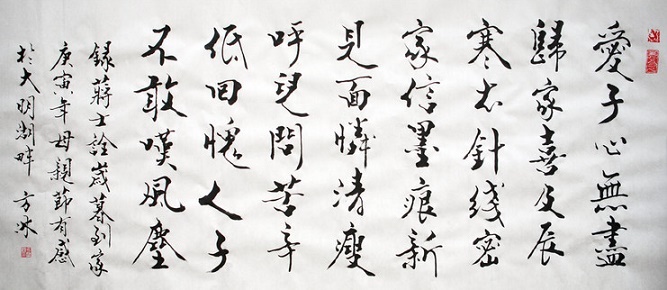 愛子心無盡
歸家喜及辰
寒衣針线密
家信墨痕新
見面憐清瘦
呼兒問苦辛
低回愧人子
不敢嘆風塵
錄蔣士詮歲暮到家
庚寅年母親節有感
於大明湖畔 方冰